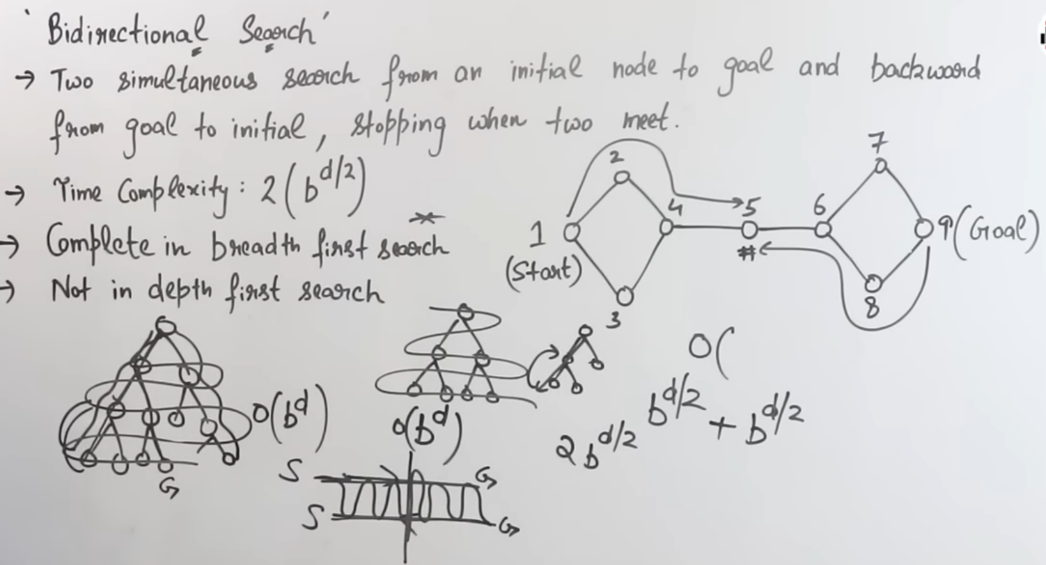 'Bidirectional Search'
→ Two simultaneous search from an initial node to goal and backward
from goal to initial, stopping when two meet.
→ Time Complexity: 2(b^d/2)
→ Complete in breadth first search
→ Not in depth first search
1
(Start)
2
3
4
5
6
7
8
9 (Goal)
G
O(b^d)
O(b^d)
S
G
S
G
O(
b^d/2 + b^d/2
2b^d/2